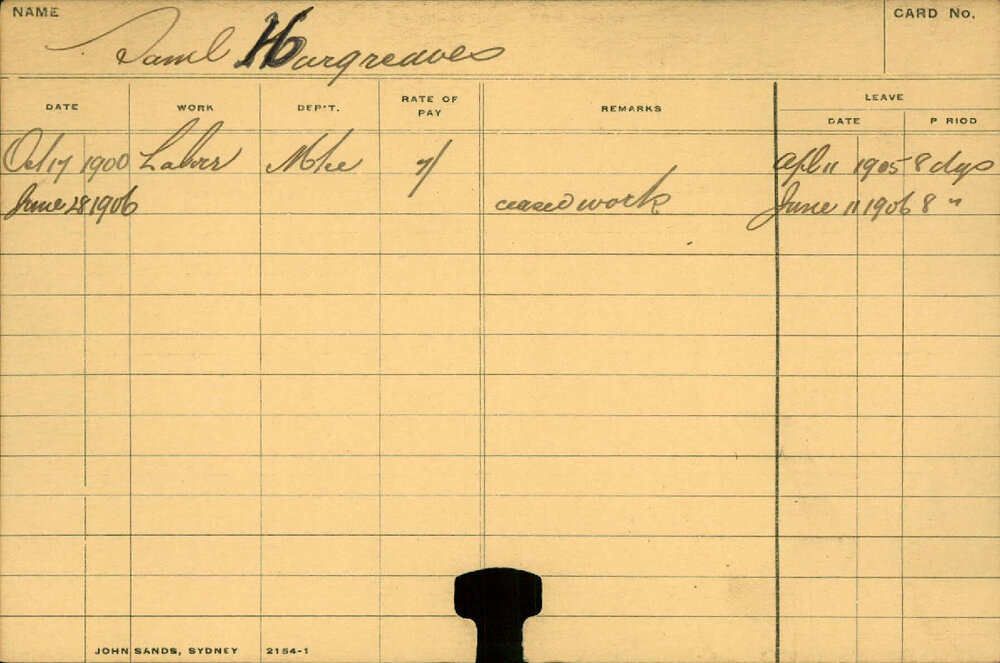 NAME
Saml Hargreaves
CARD No.
DATE WORK DEP'T. RATE OF PAY REMARKS LEAVE
DATE P RIOD
Oct 17 1900 Labor 7/ Apl 11 1905 8 dys
June 28 1906 ceased work June 11 1906 8 "
JOHN SANDS, SYDNEY 2154-1